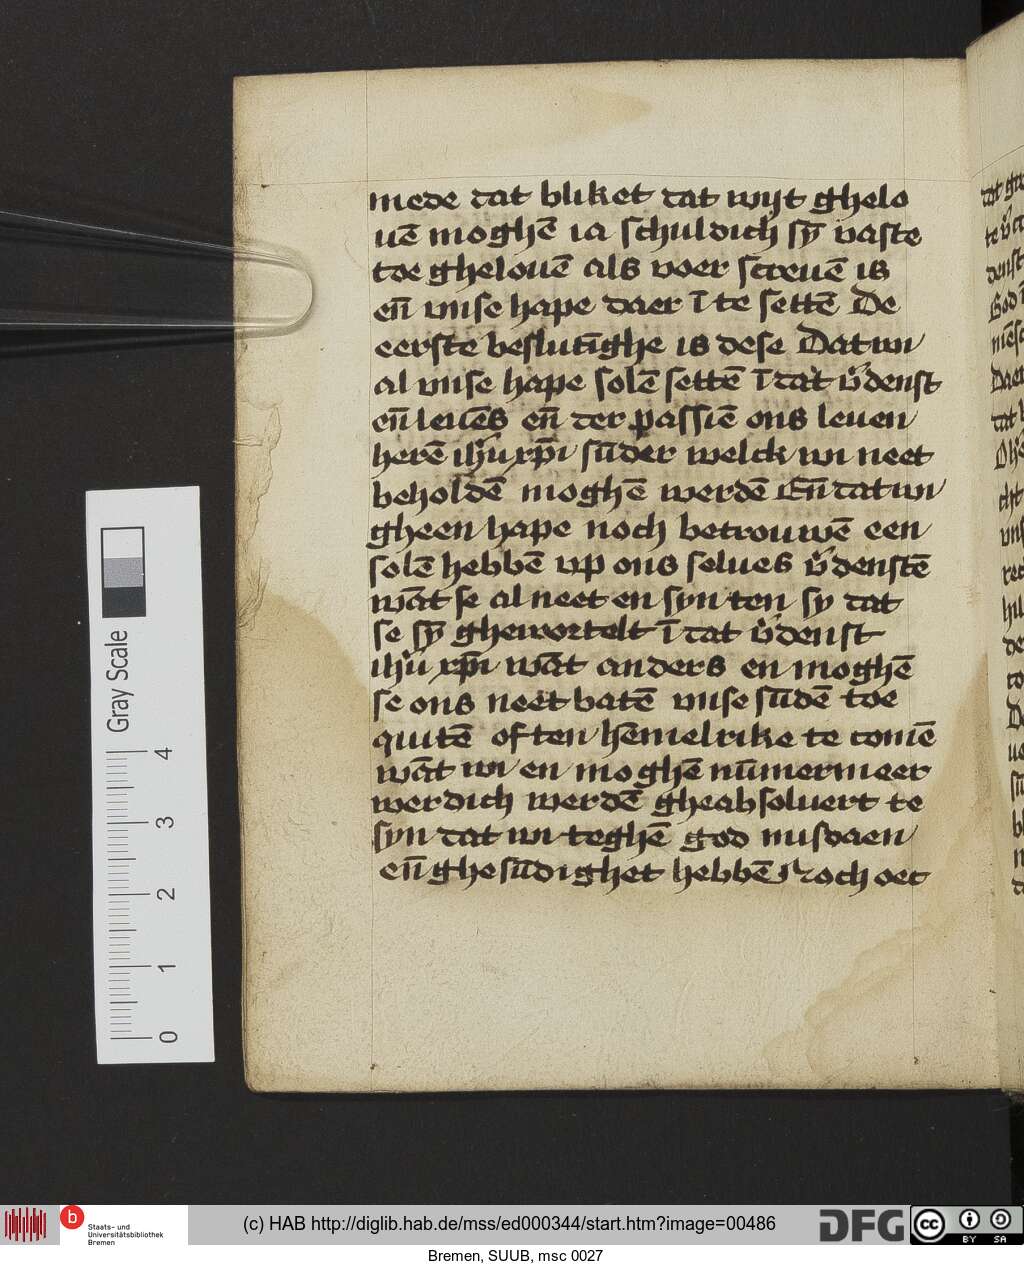 mede dat bliket dat wijt ghelo
uē moghē ia schuldich sȳ vaste
toe ghelouē als voer screuē is
en̄ vnse hape daer ī te settē De
eerste beslutīghe is dese Dat wi
al vnse hape solē settē ī dat v͛denst
en̄ leuēs en̄ der passiē ons leuen
herē ih̄u xp̄i sūder welck wi neet
beholdē moghē werdē En̄ dat wi
gheen hape noch betrouwē een
solē hebbē vp ons selues v͛denstē
wāt se al neet en syn ten sy dat
se sȳ ghewortelt ī dat v͛denst
ih̄u xp̄i wāt anders en moghē
se ons neet batē vnse sūdē toe
quitē often hēmelrike te comē
wāt wi en moghē nūmermeer
werdich werdē gheabsoluert te
syn dat wi teghē god misdaen
en̄ ghesūdighet hebbē Noch oec
Gray Scale
4
3
2
1
0
b
Staats- und
Universitätsbibliothek
Bremen
(c) HAB http://diglib.hab.de/mss/ed000344/start.htm?image=00486
DFG
cc
BY SA
Bremen, SUUB, msc 0027